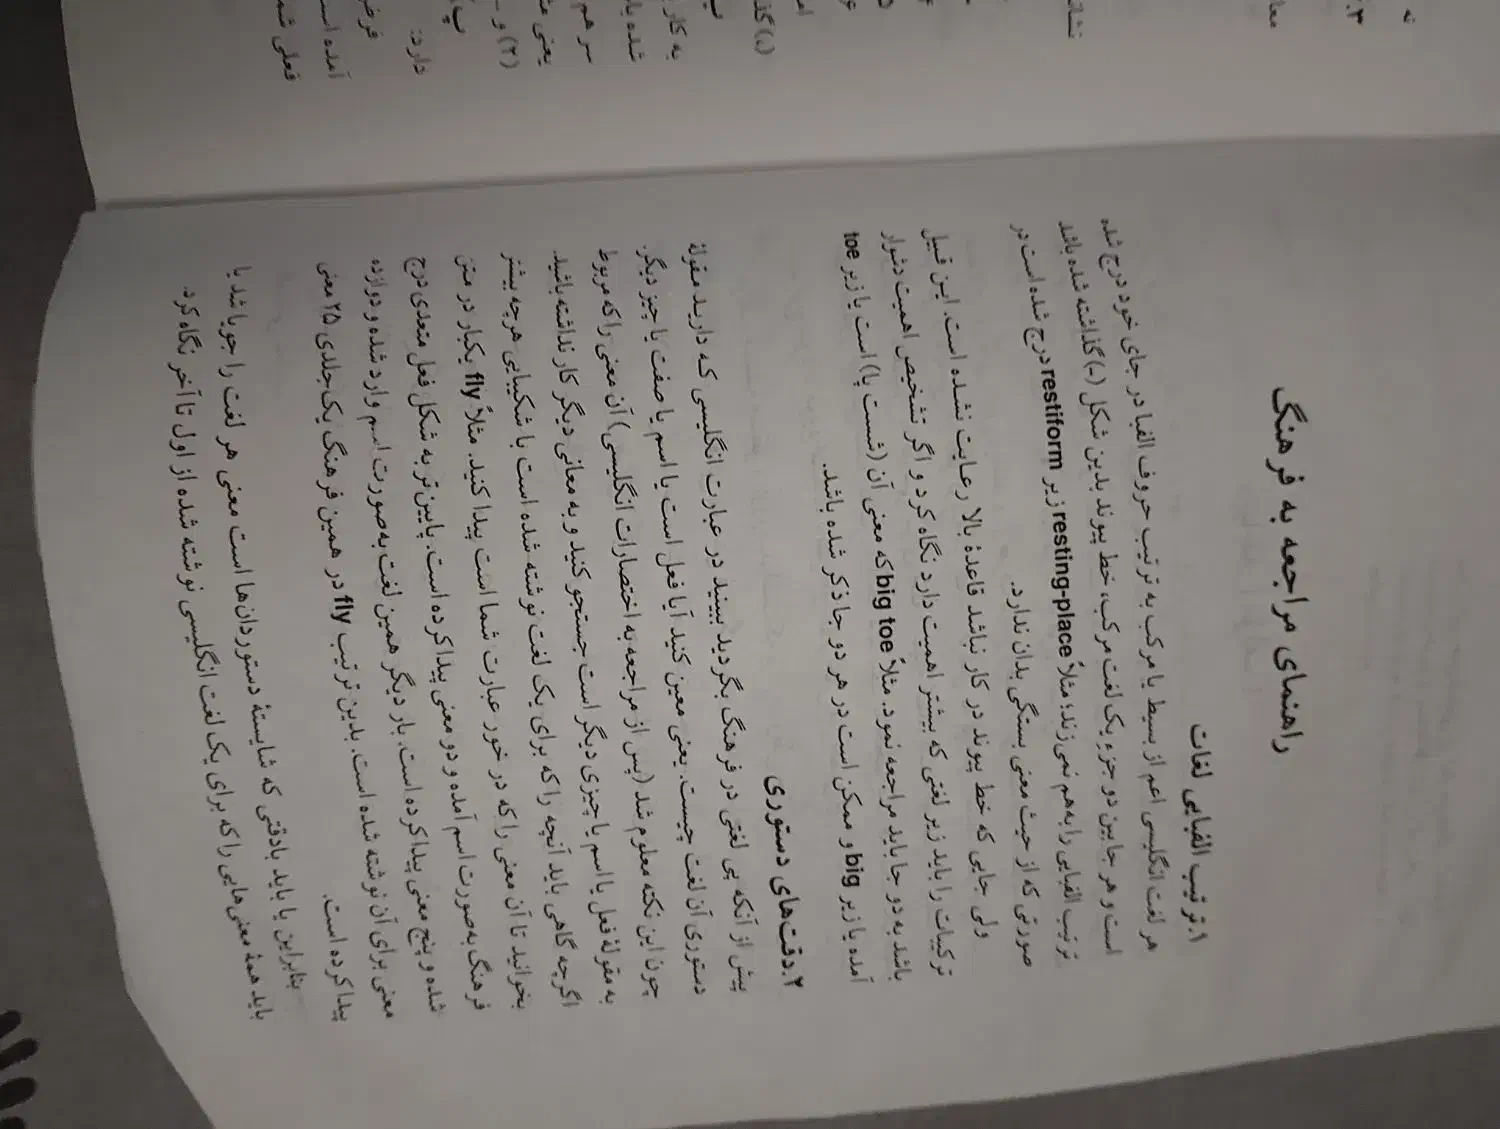 راهنمای مراجعه به فرهنگ
۱. ترتیب الفبایی لغات
هر لغت انگلیسی اعم از بسیط یا مرکب به ترتیب حروف الفبا در جای خود درج شده
است و هر جا بین دو جزءِ یک لغت مرکب، خط پیوند بدین شکل (-) گذاشته شده باشد
ترتیب الفبایی را به هم نمی‌زند؛ مثلاً resting-place زیر restiform درج شده است در
صورتی که از حیث معنی بستگی بدان ندارد.
ولی جایی که خط پیوند در کار نباشد قاعدهٔ بالا رعایت نشده است. این قبیل
ترکیبات را باید زیر لغتی که بیشتر اهمیت دارد نگاه کرد و اگر تشخیص اهمیت دشوار
باشد به دو جا باید مراجعه نمود. مثلاً big toe که معنی آن (شست پا) است یا زیر toe
آمده یا زیر big و ممکن است در هر دو جا ذکر شده باشد.
۲. دقت‌های دستوری
پیش از آنکه پی لغتی در فرهنگ بگردید ببینید در عبارت انگلیسی که دارید مقولهٔ
دستوری آن لغت چیست. یعنی معین کنید آیا فعل است یا اسم یا صفت یا چیز دیگر.
چون این نکته معلوم شد (پس از مراجعه به اختصارات انگلیسی) آن معنی را که مربوط
به مقولهٔ فعل یا اسم یا چیزی دیگر است جستجو کنید و به معانی دیگر کار نداشته باشید.
اگرچه گاهی باید آنچه را که برای یک لغت نوشته شده است با شکیبایی هرچه بیشتر
بخوانید تا آن معنی را که در خور عبارت شما است پیدا کنید. مثلاً fly یکبار در متن
فرهنگ به‌صورت اسم آمده و دو معنی پیدا کرده است. پایین‌تر به شکل فعل متعدی درج
شده و پنج معنی پیدا کرده است. بار دیگر همین لغت به‌صورت اسم وارد شده و دوازده
معنی برای آن نوشته شده است. بدین ترتیب fly در همین فرهنگ یک‌جلدی ۲۵ معنی
پیدا کرده است.
بنابراین یا باید بادقتی که شایستهٔ دستوردان‌ها است معنی هر لغت را جویا شد یا
باید همهٔ معنی‌هایی را که برای یک لغت انگلیسی نوشته شده از اول تا آخر نگاه کرد.